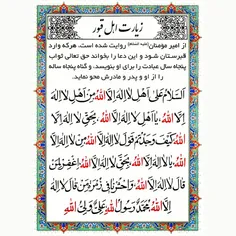 زیارت اهل قبور
از امیر مؤمنان (علیه السلام) روایت شده است، هرکه وارد
قبرستان شود و این دعا را بخواند حق تعالی ثواب
پنجاه سال عبادت را برای او بنویسد، و گناه پنجاه ساله
را از او و پدر و مادرش محو نماید.
اَلسَّلامُ عَلیٰ اَهْلِ لا اِلٰهَ اِلَّا اللهُ مِنْ اَهْلِ لا اِلٰهَ
اِلَّا اللهُ یا اَهْلَ لا اِلٰهَ اِلَّا اللهُ بِحَقِّ لا اِلٰهَ اِلَّا
اللهُ کَیْفَ وَجَدْتُمْ قَوْلَ لا اِلٰهَ اِلَّا اللهُ مِنْ لا اِلٰهَ
اِلَّا اللهُ یا لا اِلٰهَ اِلَّا اللهُ بِحَقِّ لا اِلٰهَ اِلَّا اللهُ اِغْفِرْ لِمَنْ
قالَ لا اِلٰهَ اِلَّا اللهُ وَاحْشُرْنا فی زُمْرَةِ مَنْ قالَ لا اِلٰهَ
اِلَّا اللهُ مُحَمَّدٌ رَسُولُ اللهِ عَلِیٌّ وَلِیُّ اللهِ